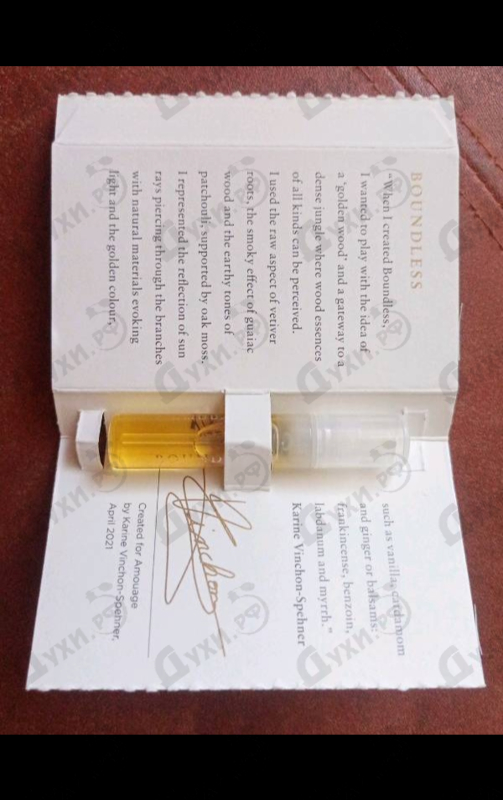 BOUNDLESS
"When I created Boundless,
I wanted to play with the idea of
a 'golden wood' and a gateway to a
dense jungle where wood essences
of all kinds can be perceived.
I used the raw aspect of vetiver
roots, the smoky effect of guaiac
wood and the earthy tones of
patchouli, supported by oak moss.
I represented the reflection of sun
rays piercing through the branches
with natural materials evoking
light and the golden colour,
such as vanilla, cardamom
and ginger or balsams:
frankincense, benzoin,
labdanum and myrrh."
Karine Vinchon-Spehner
Vinchon
Created for Amouage
by Karine Vinchon-Spehner,
April 2021
Духи.рф